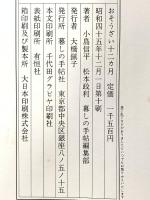 おそうざい十二カ月　定価　一千五百円
昭和四十五年十二月一日第十刷
著者　小島信平　松本政利　暮しの手帖編集部
発行者　大橋鎭子
発行所　暮しの手帖社　東京都中央区銀座八ノ五ノ十五
本文印刷所　千代田グラビヤ印刷社
表紙印刷所　有恒社
箱印刷及び製本所　大日本印刷株式会社